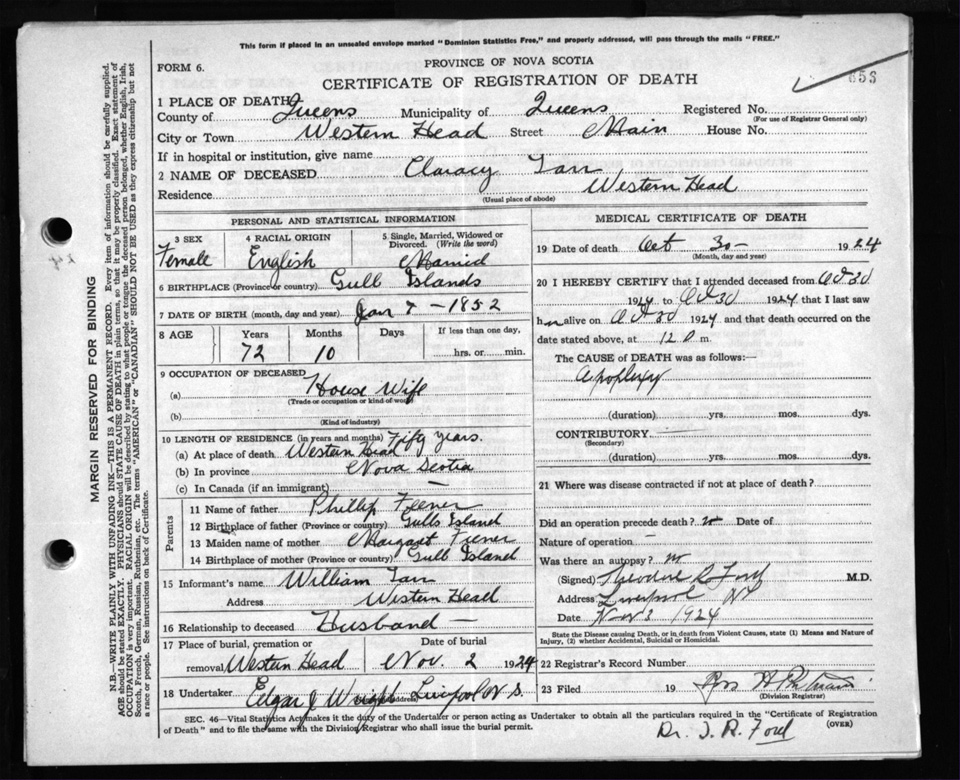 This form if placed in an unsealed envelope marked "Dominion Statistics Free," and properly addressed, will pass through the mails "FREE."
FORM 6.
PROVINCE OF NOVA SCOTIA
CERTIFICATE OF REGISTRATION OF DEATH
653
1 PLACE OF DEATH
County of Queens Municipality of Queens Registered No.
(For use of Registrar General only)
City or Town Western Head Street Main House No.
If in hospital or institution, give name
2 NAME OF DECEASED Claracy Tarr
Residence Western Head
(Usual place of abode)
PERSONAL AND STATISTICAL INFORMATION
3 SEX 4 RACIAL ORIGIN 5 Single, Married, Widowed or Divorced. (Write the word)
Female English Married
6 BIRTHPLACE (Province or country) Gull Islands
7 DATE OF BIRTH (month, day and year) Jan 7 - 1852
8 AGE Years Months Days If less than one day,
72 10 hrs. or min.
9 OCCUPATION OF DECEASED
(a) House Wife
(Trade or occupation or kind of work)
(b)
(Kind of industry)
10 LENGTH OF RESIDENCE (in years and months) Fifty years.
(a) At place of death Western Head
(b) In province Nova Scotia
(c) In Canada (if an immigrant) —
Parents
11 Name of father Phillip Fiener
12 Birthplace of father (Province or country) Gulls Island
13 Maiden name of mother Margaret Fiener
14 Birthplace of mother (Province or country) Gull Island
15 Informant's name William Tarr
Address Western Head
16 Relationship to deceased Husband —
17 Place of burial, cremation or removal Western Head Date of burial Nov. 2 1924
18 Undertaker Edgar J Wright (Address) Liverpool N S.
MEDICAL CERTIFICATE OF DEATH
19 Date of death Oct 30 - 1924
(Month, day and year)
20 I HEREBY CERTIFY that I attended deceased from Oct 30
1924 to Oct 30 1924 that I last saw
h alive on Oct 30 1924 and that death occurred on the
date stated above, at 12 m.
The CAUSE OF DEATH was as follows:—
Apoplexy
(duration) yrs. mos. dys.
CONTRIBUTORY —
(Secondary)
(duration) yrs. mos. dys.
21 Where was disease contracted if not at place of death?
Did an operation precede death? no Date of
Nature of operation —
Was there an autopsy? no
(Signed) Theodore R Ford M.D.
Address Liverpool NS
Date Nov 3 1924
State the Disease causing Death, or in death from Violent Causes, state (1) Means and Nature of Injury, (2) whether Accidental, Suicidal or Homicidal.
22 Registrar's Record Number
23 Filed 19
(Division Registrar)
SEC. 46—Vital Statistics Act makes it the duty of the Undertaker or person acting as Undertaker to obtain all the particulars required in the "Certificate of Registration
of Death" and to file the same with the Division Registrar who shall issue the burial permit.
(OVER)
Dr. T. R. Ford
MARGIN RESERVED FOR BINDING
N.B.—WRITE PLAINLY WITH UNFADING INK—THIS IS A PERMANENT RECORD. Every item of information should be carefully supplied.
AGE should be stated EXACTLY. PHYSICIANS should STATE CAUSE OF DEATH in plain terms, so that it may be properly classified. Exact statement of
OCCUPATION is very important. RACIAL ORIGIN will be described by stating to what people or tongue the deceased person belonged, whether English, Irish,
Scotch, French, German, Russian, Ruthenian, etc. The terms "AMERICAN" or "CANADIAN" SHOULD NOT BE USED as they express citizenship but not
a race or people. See instructions on back of Certificate.